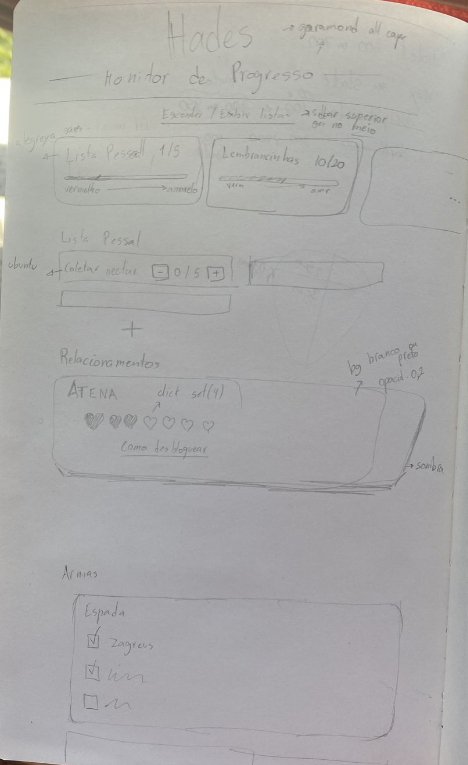 Hades → garamond all caps
Monitor de Progresso
Esconder / Exibir listas → setar superior
no meio
Lista Pessoal 1/5
Lembrancinhas 10/20
vermelho → amarelo
...
Lista Pessal
ubuntu
Coletar nectar - 0/5 +
+
Relacionamentos
bg branco ou
preto
opacid. 0,2
ATENA dict set(4)
Como desbloquear
sombra
Armas
Espada
Zagreus